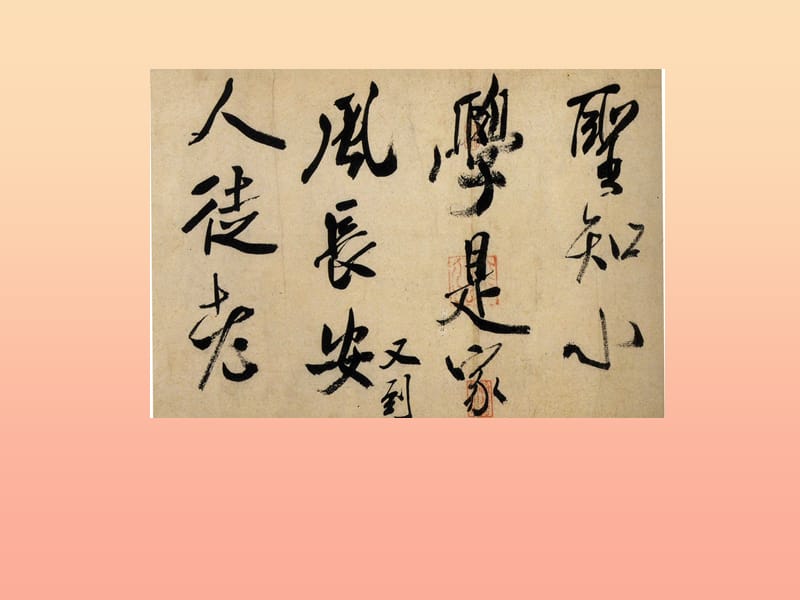 聖知小
學是家
風長安
又到
人徒老